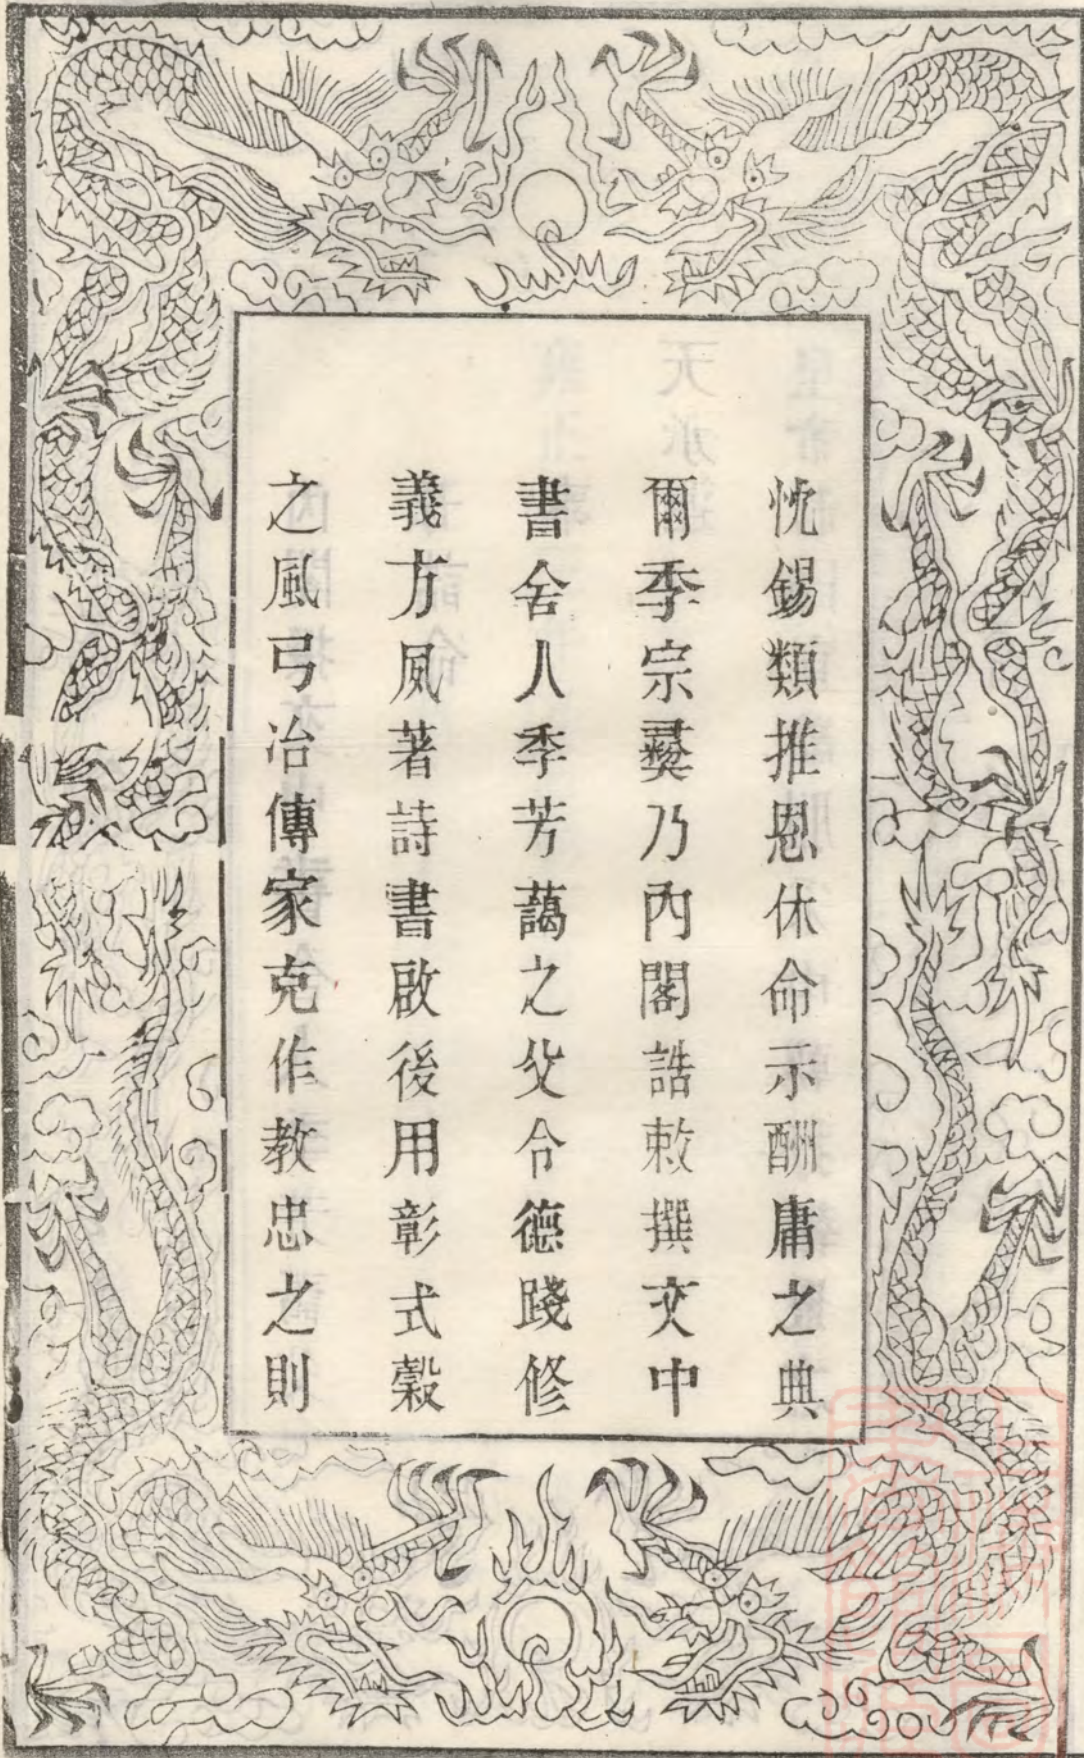 忱錫類推恩休命示酬庸之典
爾季宗彝乃內閣誥敕撰文中
書舍人季芳藹之父令德踐修
義方夙著詩書啟後用彰式穀
之風弓冶傳家克作教忠之則